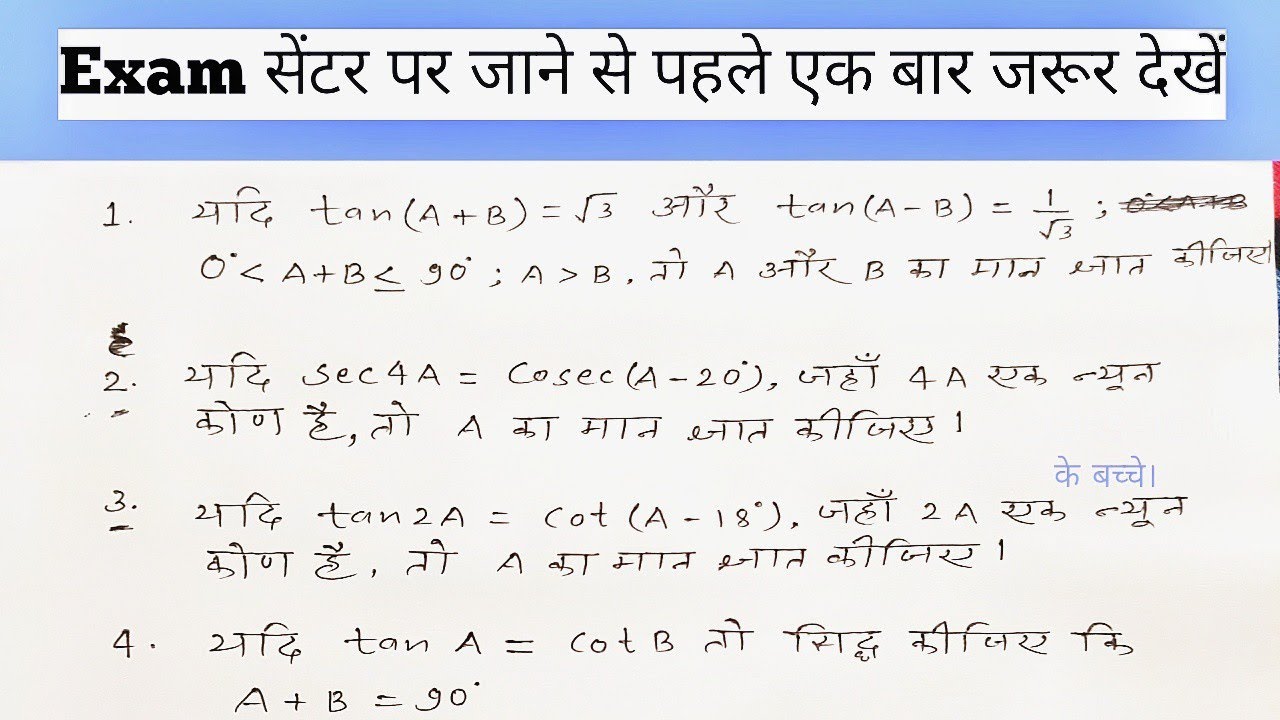 Exam सेंटर पर जाने से पहले एक बार जरूर देखें
1. यदि tan(A+B) = √3 और tan(A-B) = 1/√3 ;
0° < A+B ≤ 90° ; A > B, तो A और B का मान ज्ञात कीजिए।
2. यदि sec4A = Cosec(A-20°), जहाँ 4A एक न्यून
कोण है, तो A का मान ज्ञात कीजिए।
के बच्चे।
3. यदि tan2A = Cot(A-18°), जहाँ 2A एक न्यून
कोण है, तो A का मान ज्ञात कीजिए।
4. यदि tan A = Cot B तो सिद्ध कीजिए कि
A + B = 90°